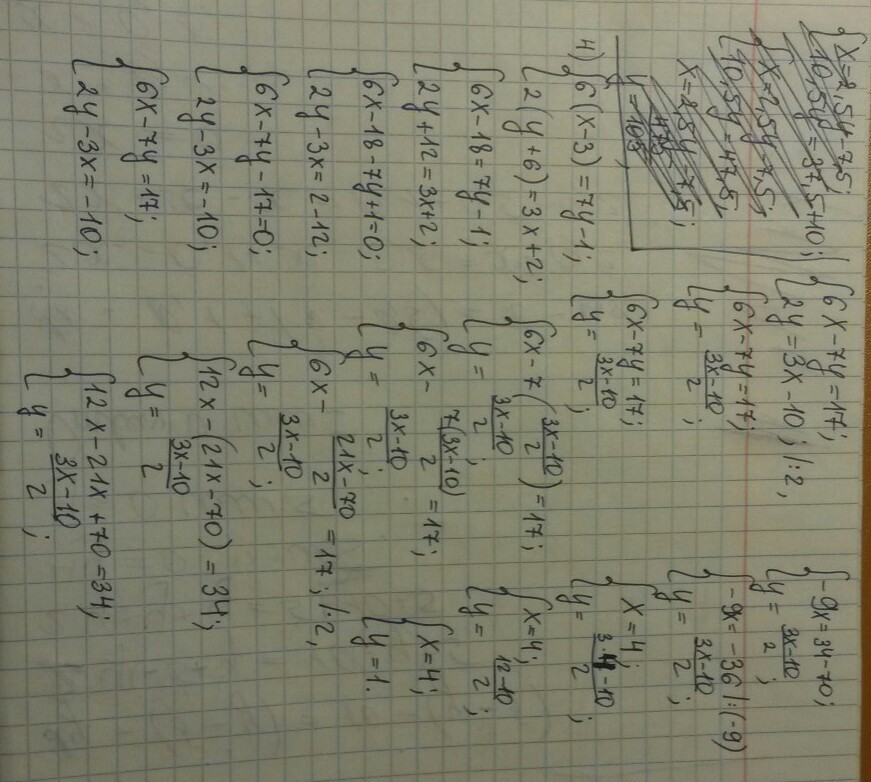 {x=2,5y-7,5;
{10,5y=37,5+10;
{x=2,5y-7,5;
{10,5y=47,5;
{x=2,5y-7,5;
{y=475/105;
4) {6(x-3)=7y-1;
{2(y+6)=3x+2;
{6x-18=7y-1;
{2y+12=3x+2;
{6x-18-7y+1=0;
{2y-3x=2-12;
{6x-7y-17=0;
{2y-3x=-10;
{6x-7y=17;
{2y-3x=-10;
{6x-7y=17;
{2y=3x-10; /:2,
{6x-7y=17;
{y=(3x-10)/2;
{6x-7y=17;
{y=(3x-10)/2;
{6x-7((3x-10)/2)=17;
{y=(3x-10)/2;
{6x-7(3x-10)/2=17;
{y=(3x-10)/2;
{6x-(21x-70)/2=17; /·2,
{y=(3x-10)/2;
{12x-(21x-70)=34;
{y=(3x-10)/2
{12x-21x+70=34;
{y=(3x-10)/2;
{-9x=34-70;
{y=(3x-10)/2;
{-9x=-36 |:(-9)
{y=(3x-10)/2;
{x=4;
{y=(3·4-10)/2;
{x=4;
{y=(12-10)/2;
{x=4;
{y=1.